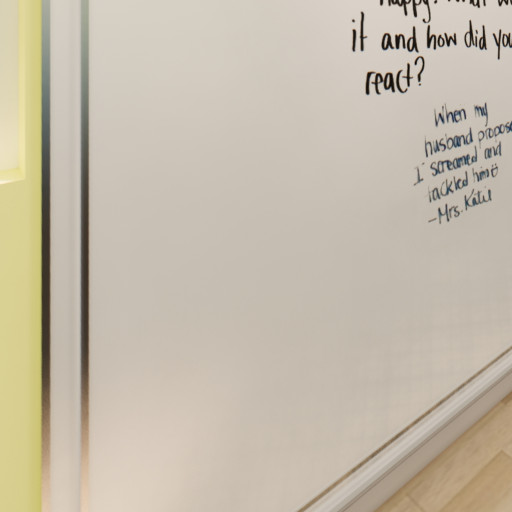 happy? What w
it and how did you
react?
When my
husband propose
I screamed and
tackled him!
-Mrs. Katie